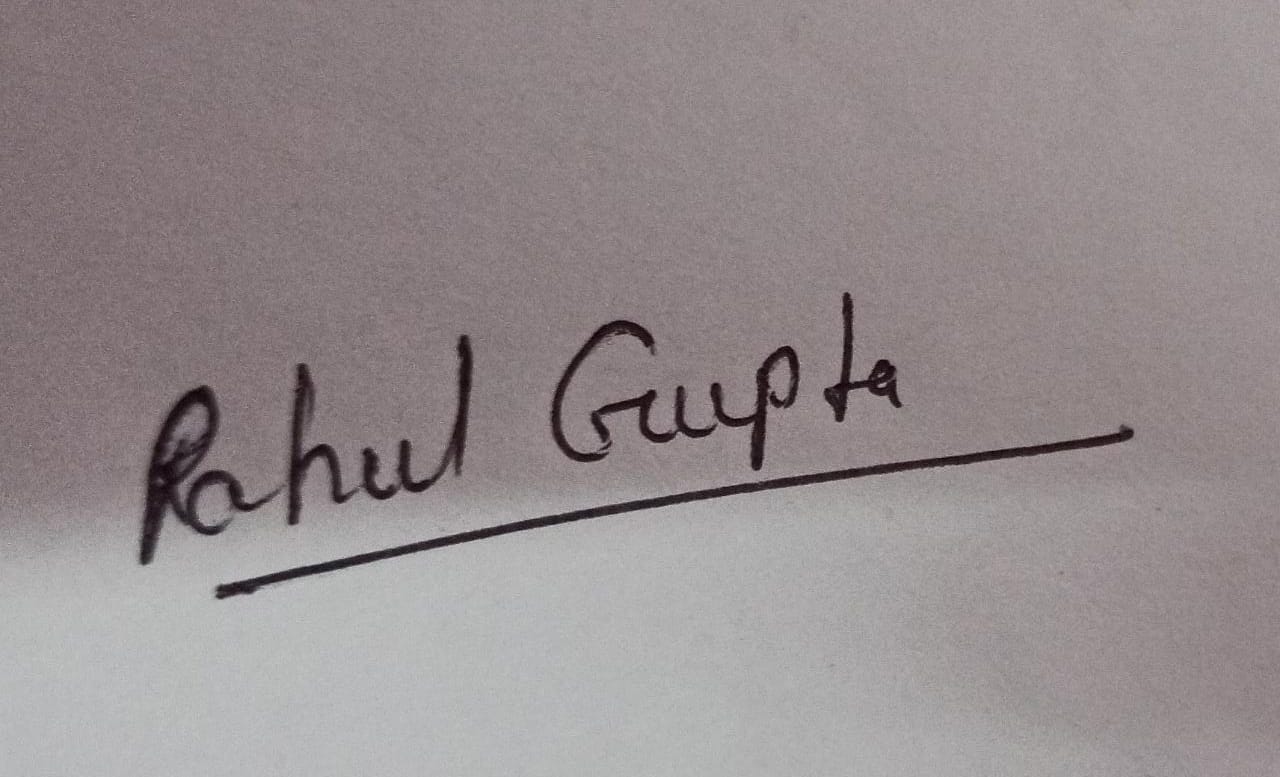 Rahul Gupta